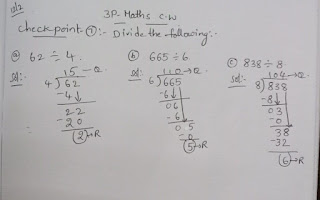 3P Maths C.W
Check point ①:- Divide the following:-
ⓐ 62 ÷ 4
Sol:-
15 → Q
4) 62
-4↓
22
-20
② → R
ⓑ 665 ÷ 6
Sol:-
110 → Q
6) 665
-6↓
06
-6↓
05
-0
⑤ → R
ⓒ 838 ÷ 8
Sol:-
104 → Q
8) 838
-8↓
03
-0↓
38
-32
⑥ → R